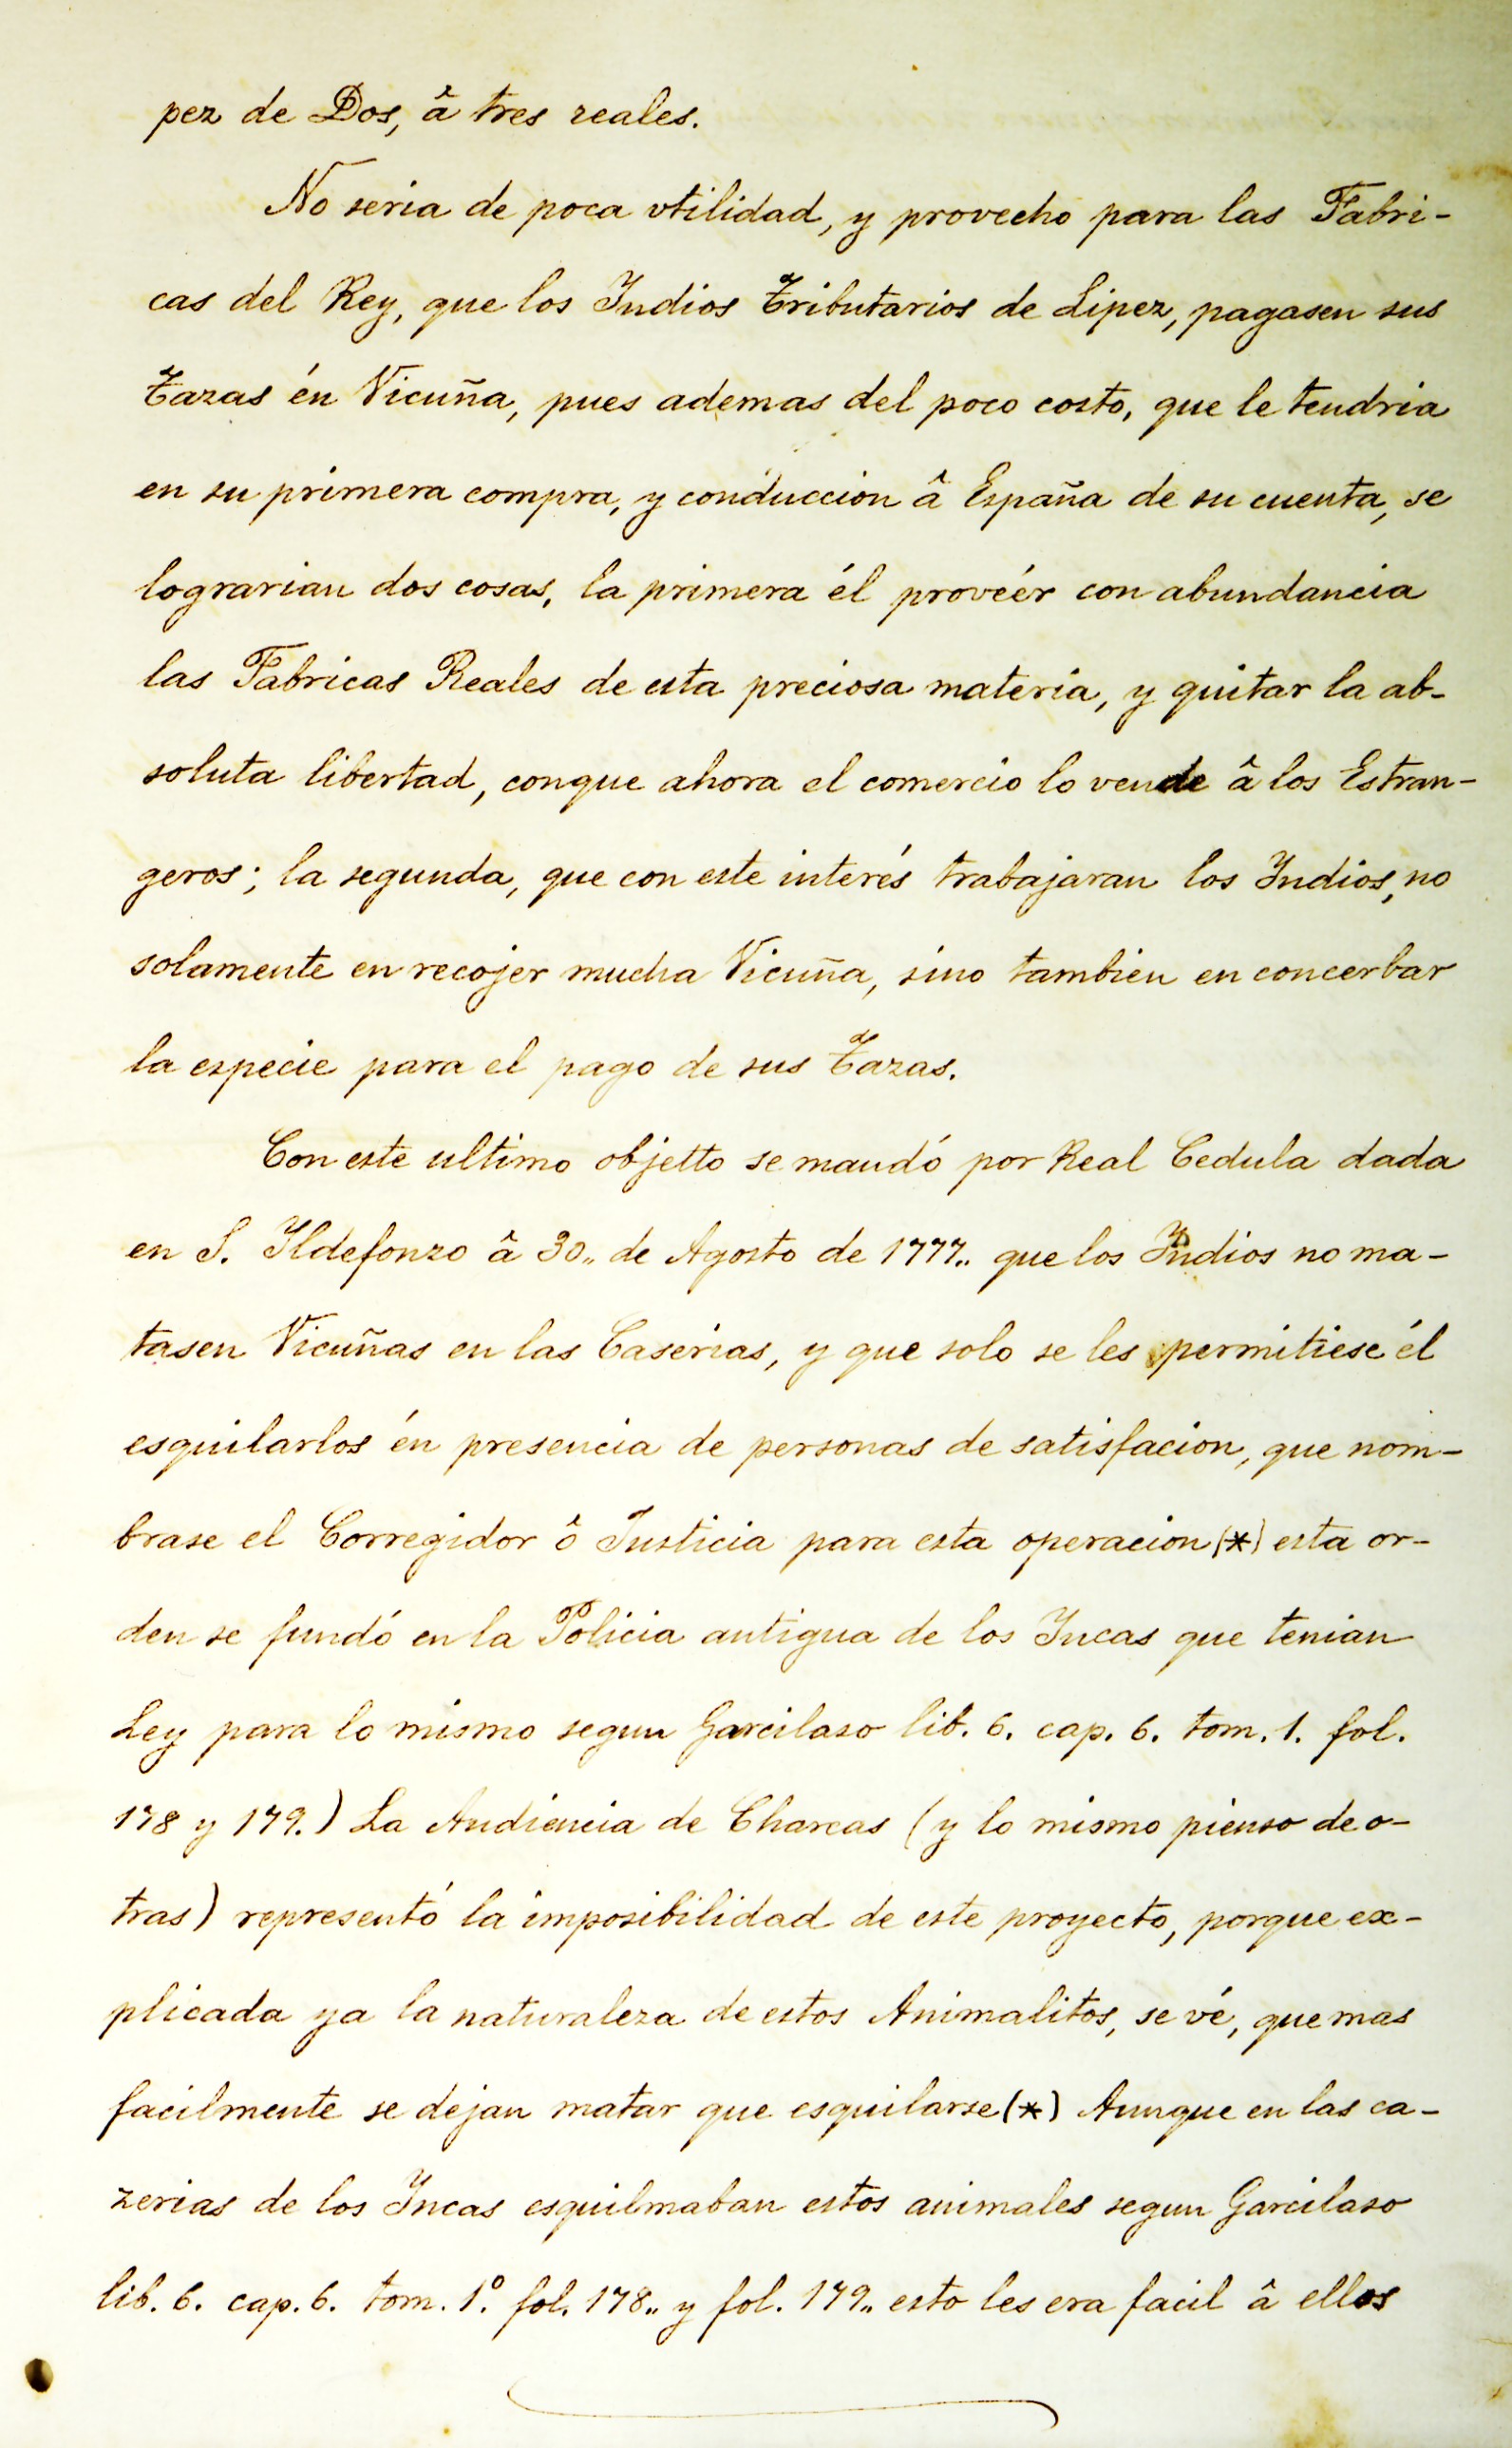 pez de Dos, â tres reales.
No seria de poca vtilidad, y provecho para las Fabri-
cas del Rey, que los Indios Tributarios de Lipez, pagasen sus
Tazas én Vicuña, pues ademas del poco costo, que le tendria
en su primera compra, y conduccion â España de su cuenta, se
lograrian dos cosas, la primera él proveér con abundancia
las Fabricas Reales de esta preciosa materia, y quitar la ab-
soluta libertad, conque ahora el comercio lo vende â los Estran-
geros; la segunda, que con este interés trabajaran los Indios, no
solamente en recojer mucha Vicuña, sino tambien en concerbar
la especie para el pago de sus Tazas.
Con este ultimo objetto se mandó por Real Cedula dada
en S. Ildefonzo â 30,, de Agosto de 1777.. que los Indios no ma-
tasen Vicuñas en las Caserias, y que solo se les permitiese él
esquilarlos én presencia de personas de satisfacion, que nom-
brase el Corregidor ô Justicia para esta operacion (*) esta or-
den se fundó en la Policia antigua de los Incas que tenian
Ley para lo mismo segun Garcilaso lib. 6. cap. 6. tom. 1. fol.
178 y 179.) La Audiencia de Charcas (y lo mismo pienso de o-
tras) representó la imposibilidad de este proyecto, porque ex-
plicada ya la naturaleza de estos Animalitos, se vé, que mas
facilmente se dejan matar que esquilarse (*) Aunque en las ca-
zerias de los Incas esquilmaban estos animales segun Garcilaso
lib. 6. cap. 6. tom. 1º. fol. 178,, y fol. 179,, esto les era facil â ellos